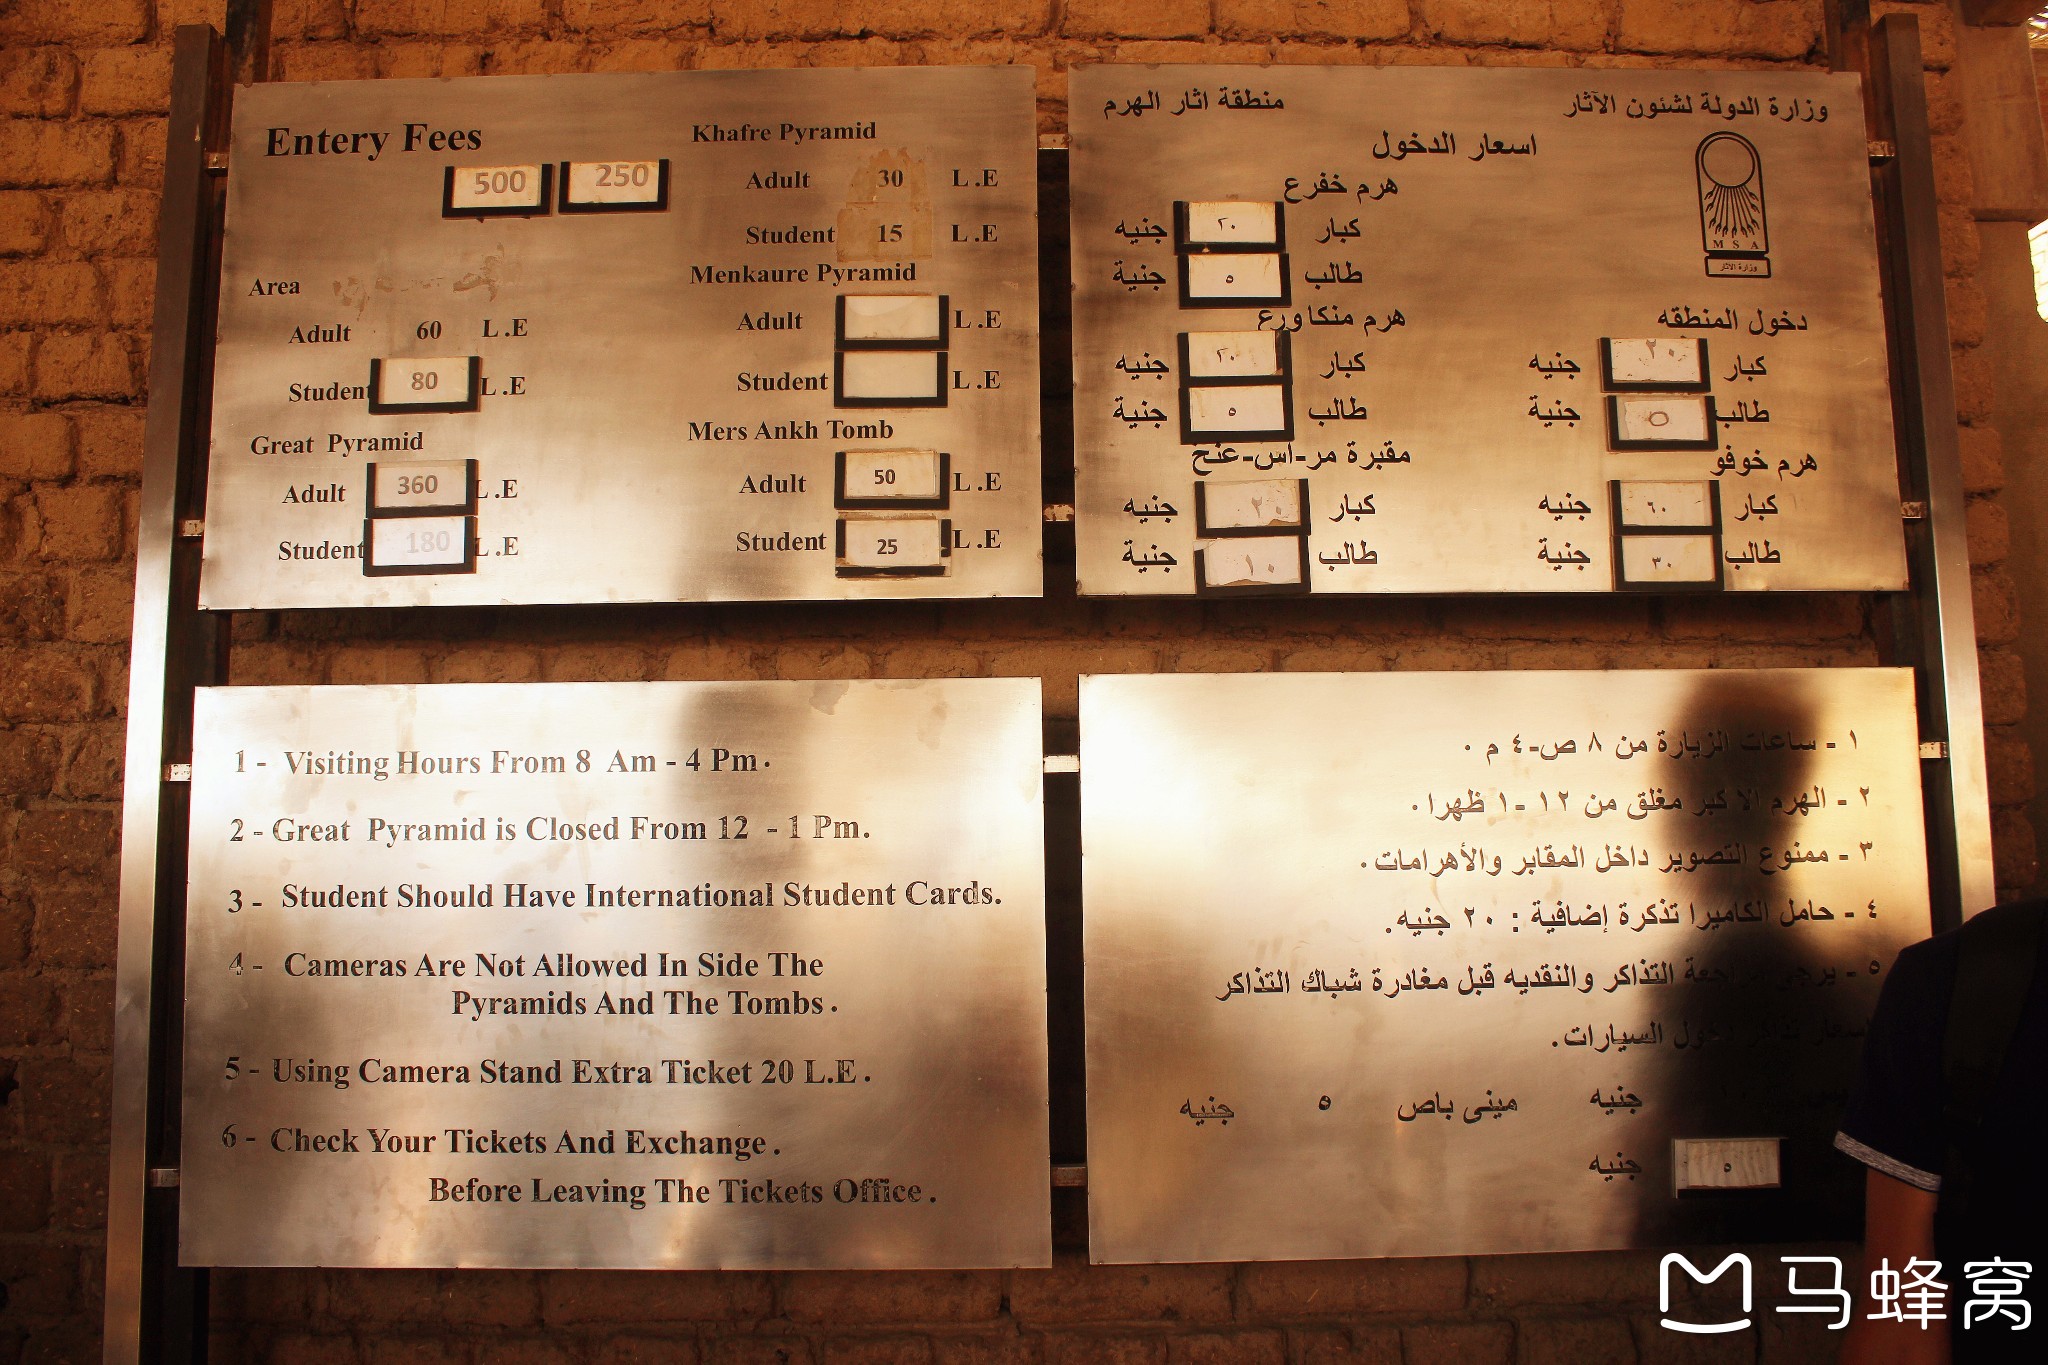 Entery Fees
500 250
Area
Adult 60 L.E
Student 80 L.E
Great Pyramid
Adult 360 L.E
Student 180 L.E
Khafre Pyramid
Adult 30 L.E
Student 15 L.E
Menkaure Pyramid
Adult L.E
Student L.E
Mers Ankh Tomb
Adult 50 L.E
Student 25 L.E
وزارة الدولة لشئون الآثار
منطقة اثار الهرم
اسعار الدخول
M S A
وزارة الآثار
دخول المنطقه
كبار ٢٠ جنيه
طالب ٥ جنية
هرم خوفو
كبار ٦٠ جنيه
طالب ٣٠ جنية
هرم خفرع
كبار ٢٠ جنيه
طالب ٥ جنية
هرم منكاورع
كبار ٢٠ جنيه
طالب ٥ جنية
مقبرة مر-اس-عنخ
كبار ٢٠ جنيه
طالب ١٠ جنية
1 - Visiting Hours From 8 Am - 4 Pm.
2 - Great Pyramid is Closed From 12 - 1 Pm.
3 - Student Should Have International Student Cards.
4 - Cameras Are Not Allowed In Side The
Pyramids And The Tombs.
5 - Using Camera Stand Extra Ticket 20 L.E.
6 - Check Your Tickets And Exchange.
Before Leaving The Tickets Office.
١ - ساعات الزيارة من ٨ ص-٤ م .
٢ - الهرم الاكبر مغلق من ١٢ -١ ظهرا.
٣ - ممنوع التصوير داخل المقابر والأهرامات.
٤ - حامل الكاميرا تذكرة إضافية : ٢٠ جنيه.
٥ - يرجى التذاكر والنقديه قبل مغادرة شباك التذاكر
دخول السيارات.
جنيه مينى باص ٥ جنيه
٥ جنيه
马蜂窝